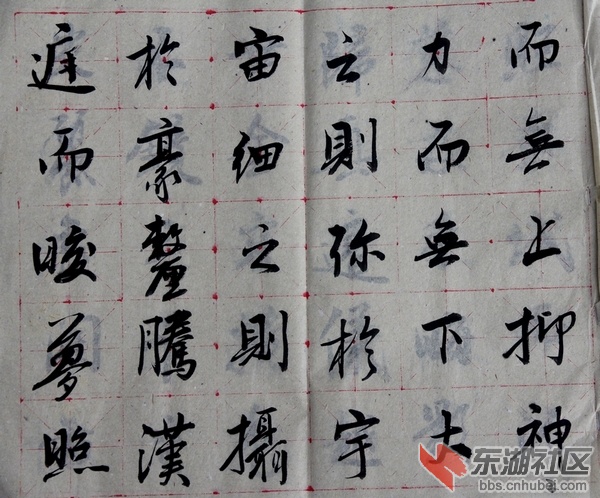 而無上抑神
力而無下大
之則弥於宇
宙細之則攝
於豪釐騰漢
庭而皎夢照
东湖社区
bbs.cnhubei.com